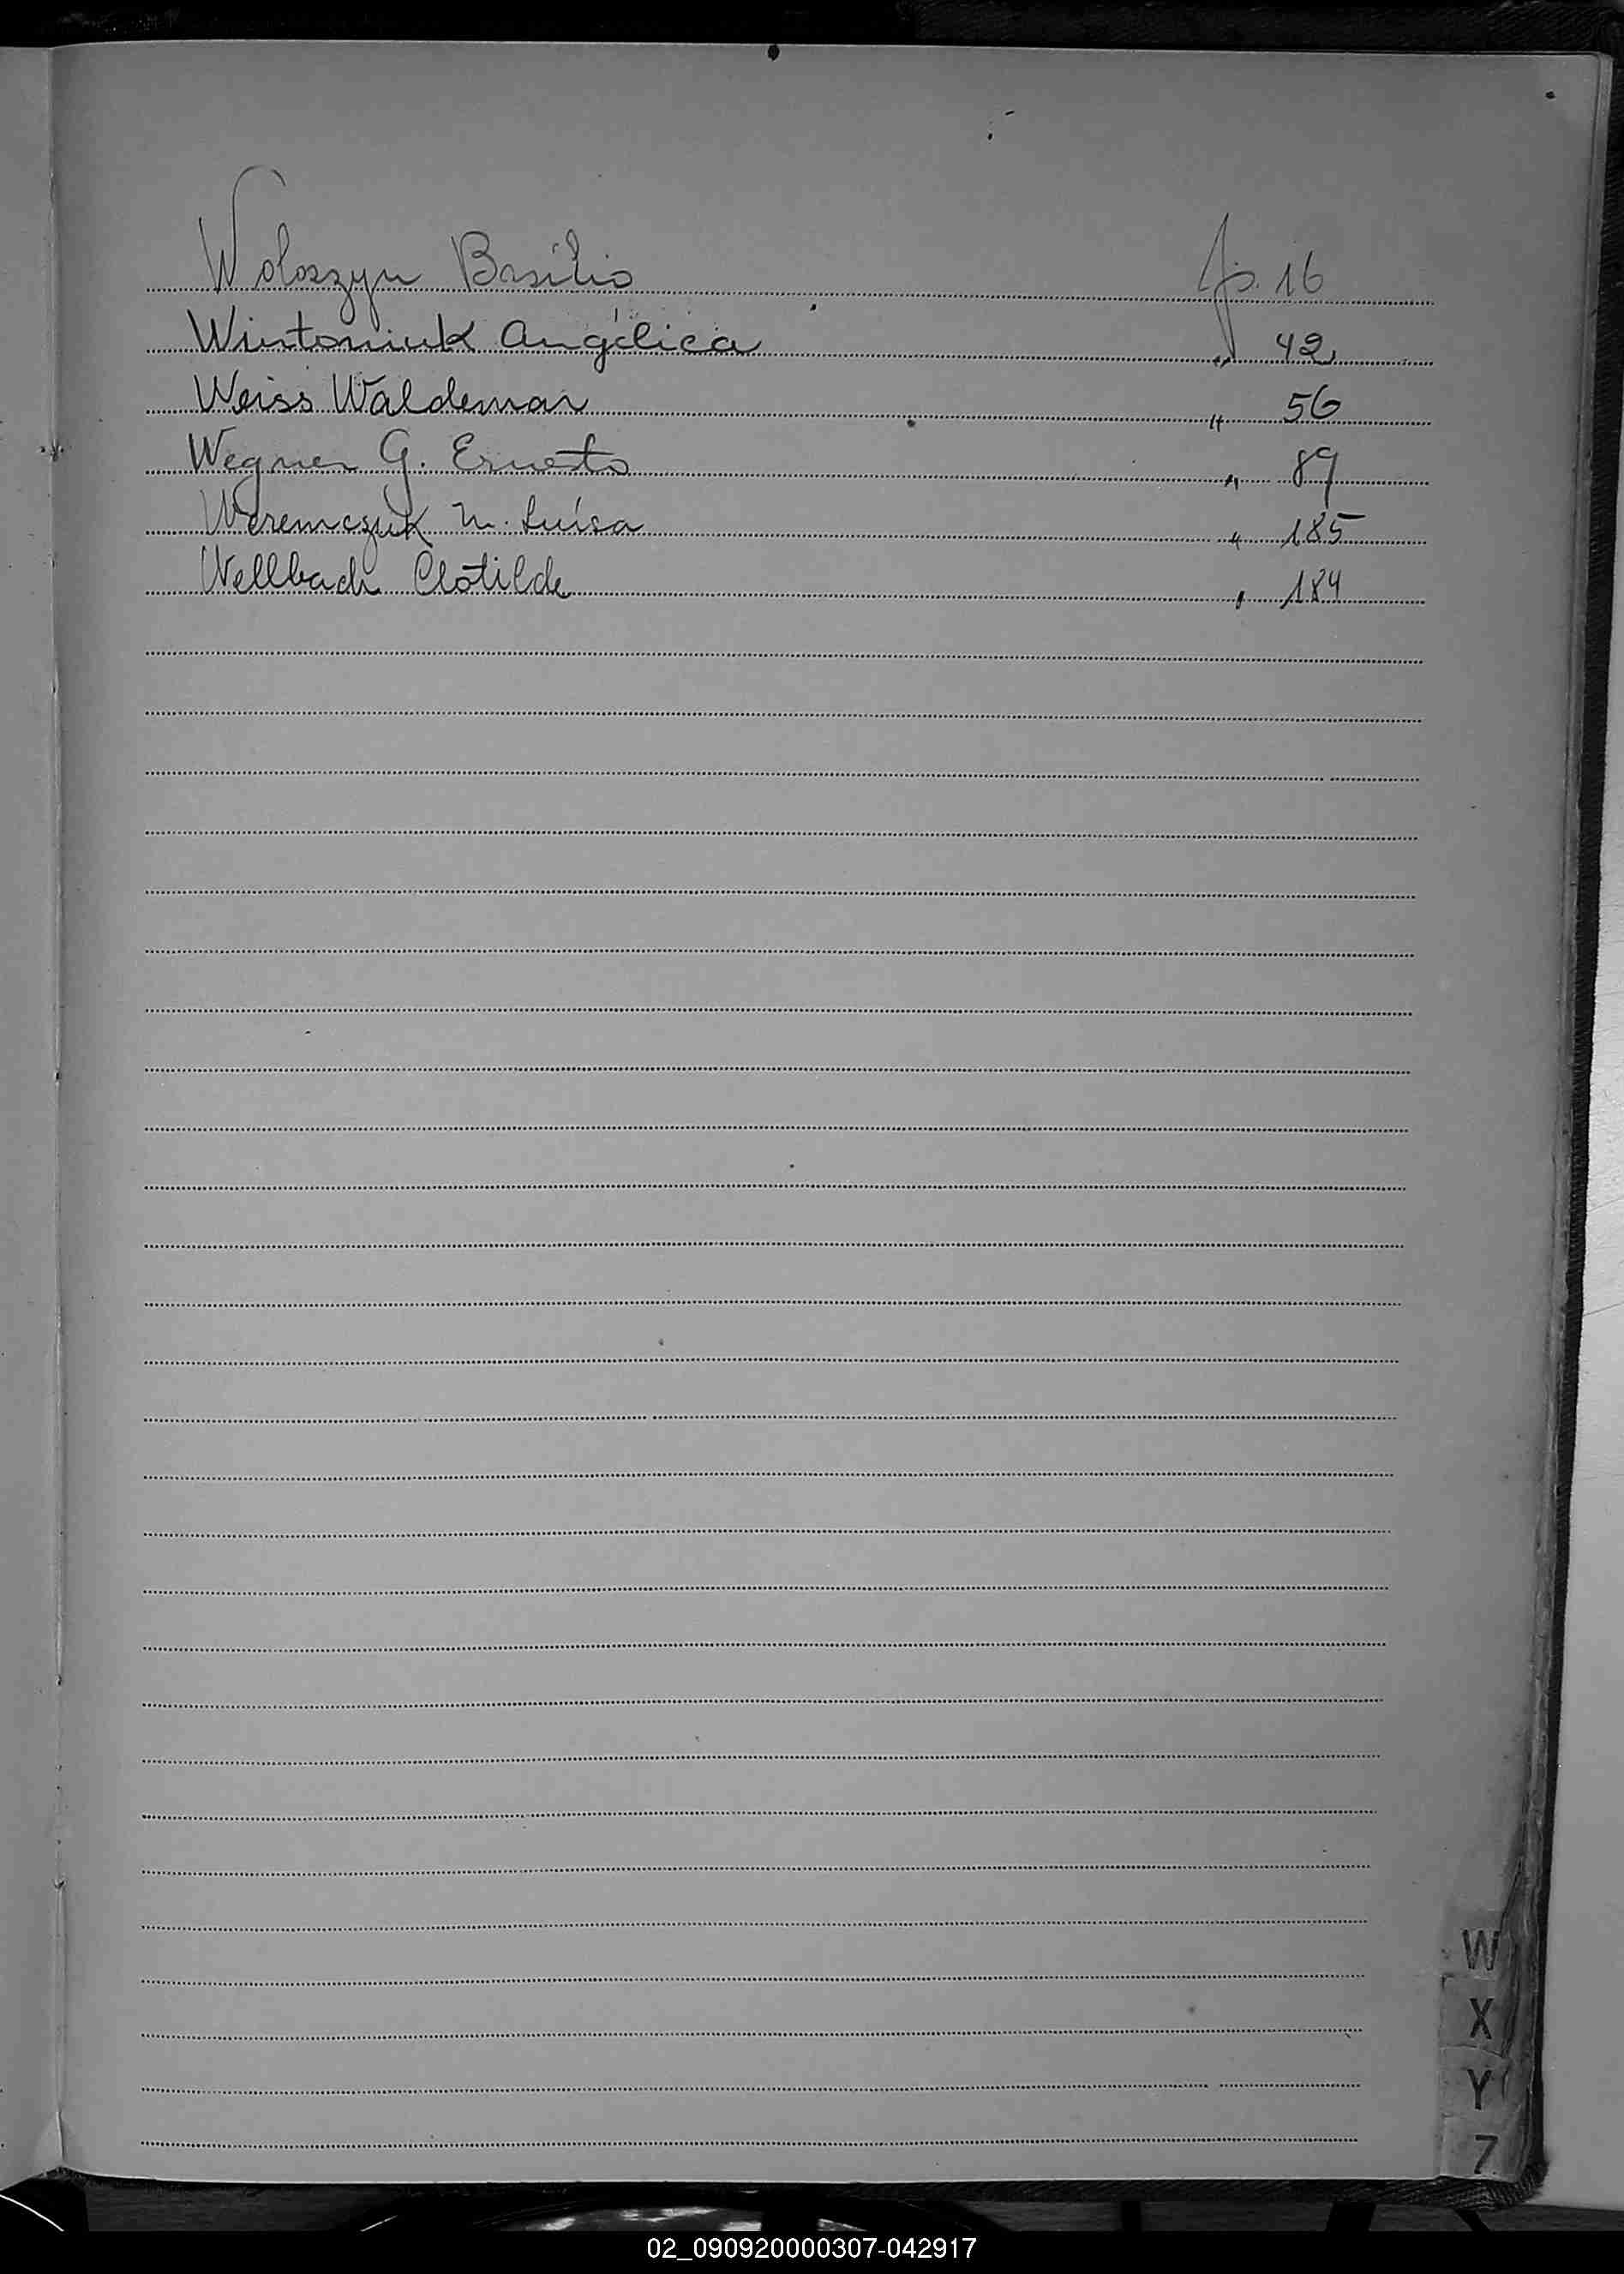 Woloszyn Basílio fs. 16
Wintoniuk Angélica " 42
Weiss Waldemar " 56
Wegner G. Ernesto " 89
Weremczuk M. Luísa " 185
Wellbach Clotilde " 184
W
X
Y
Z
02_090920000307-042917